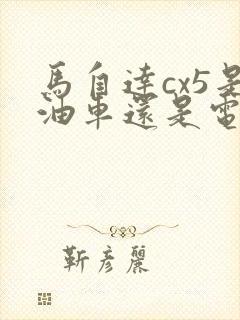 馬自達cx5是
油車還是電
靳彥麗